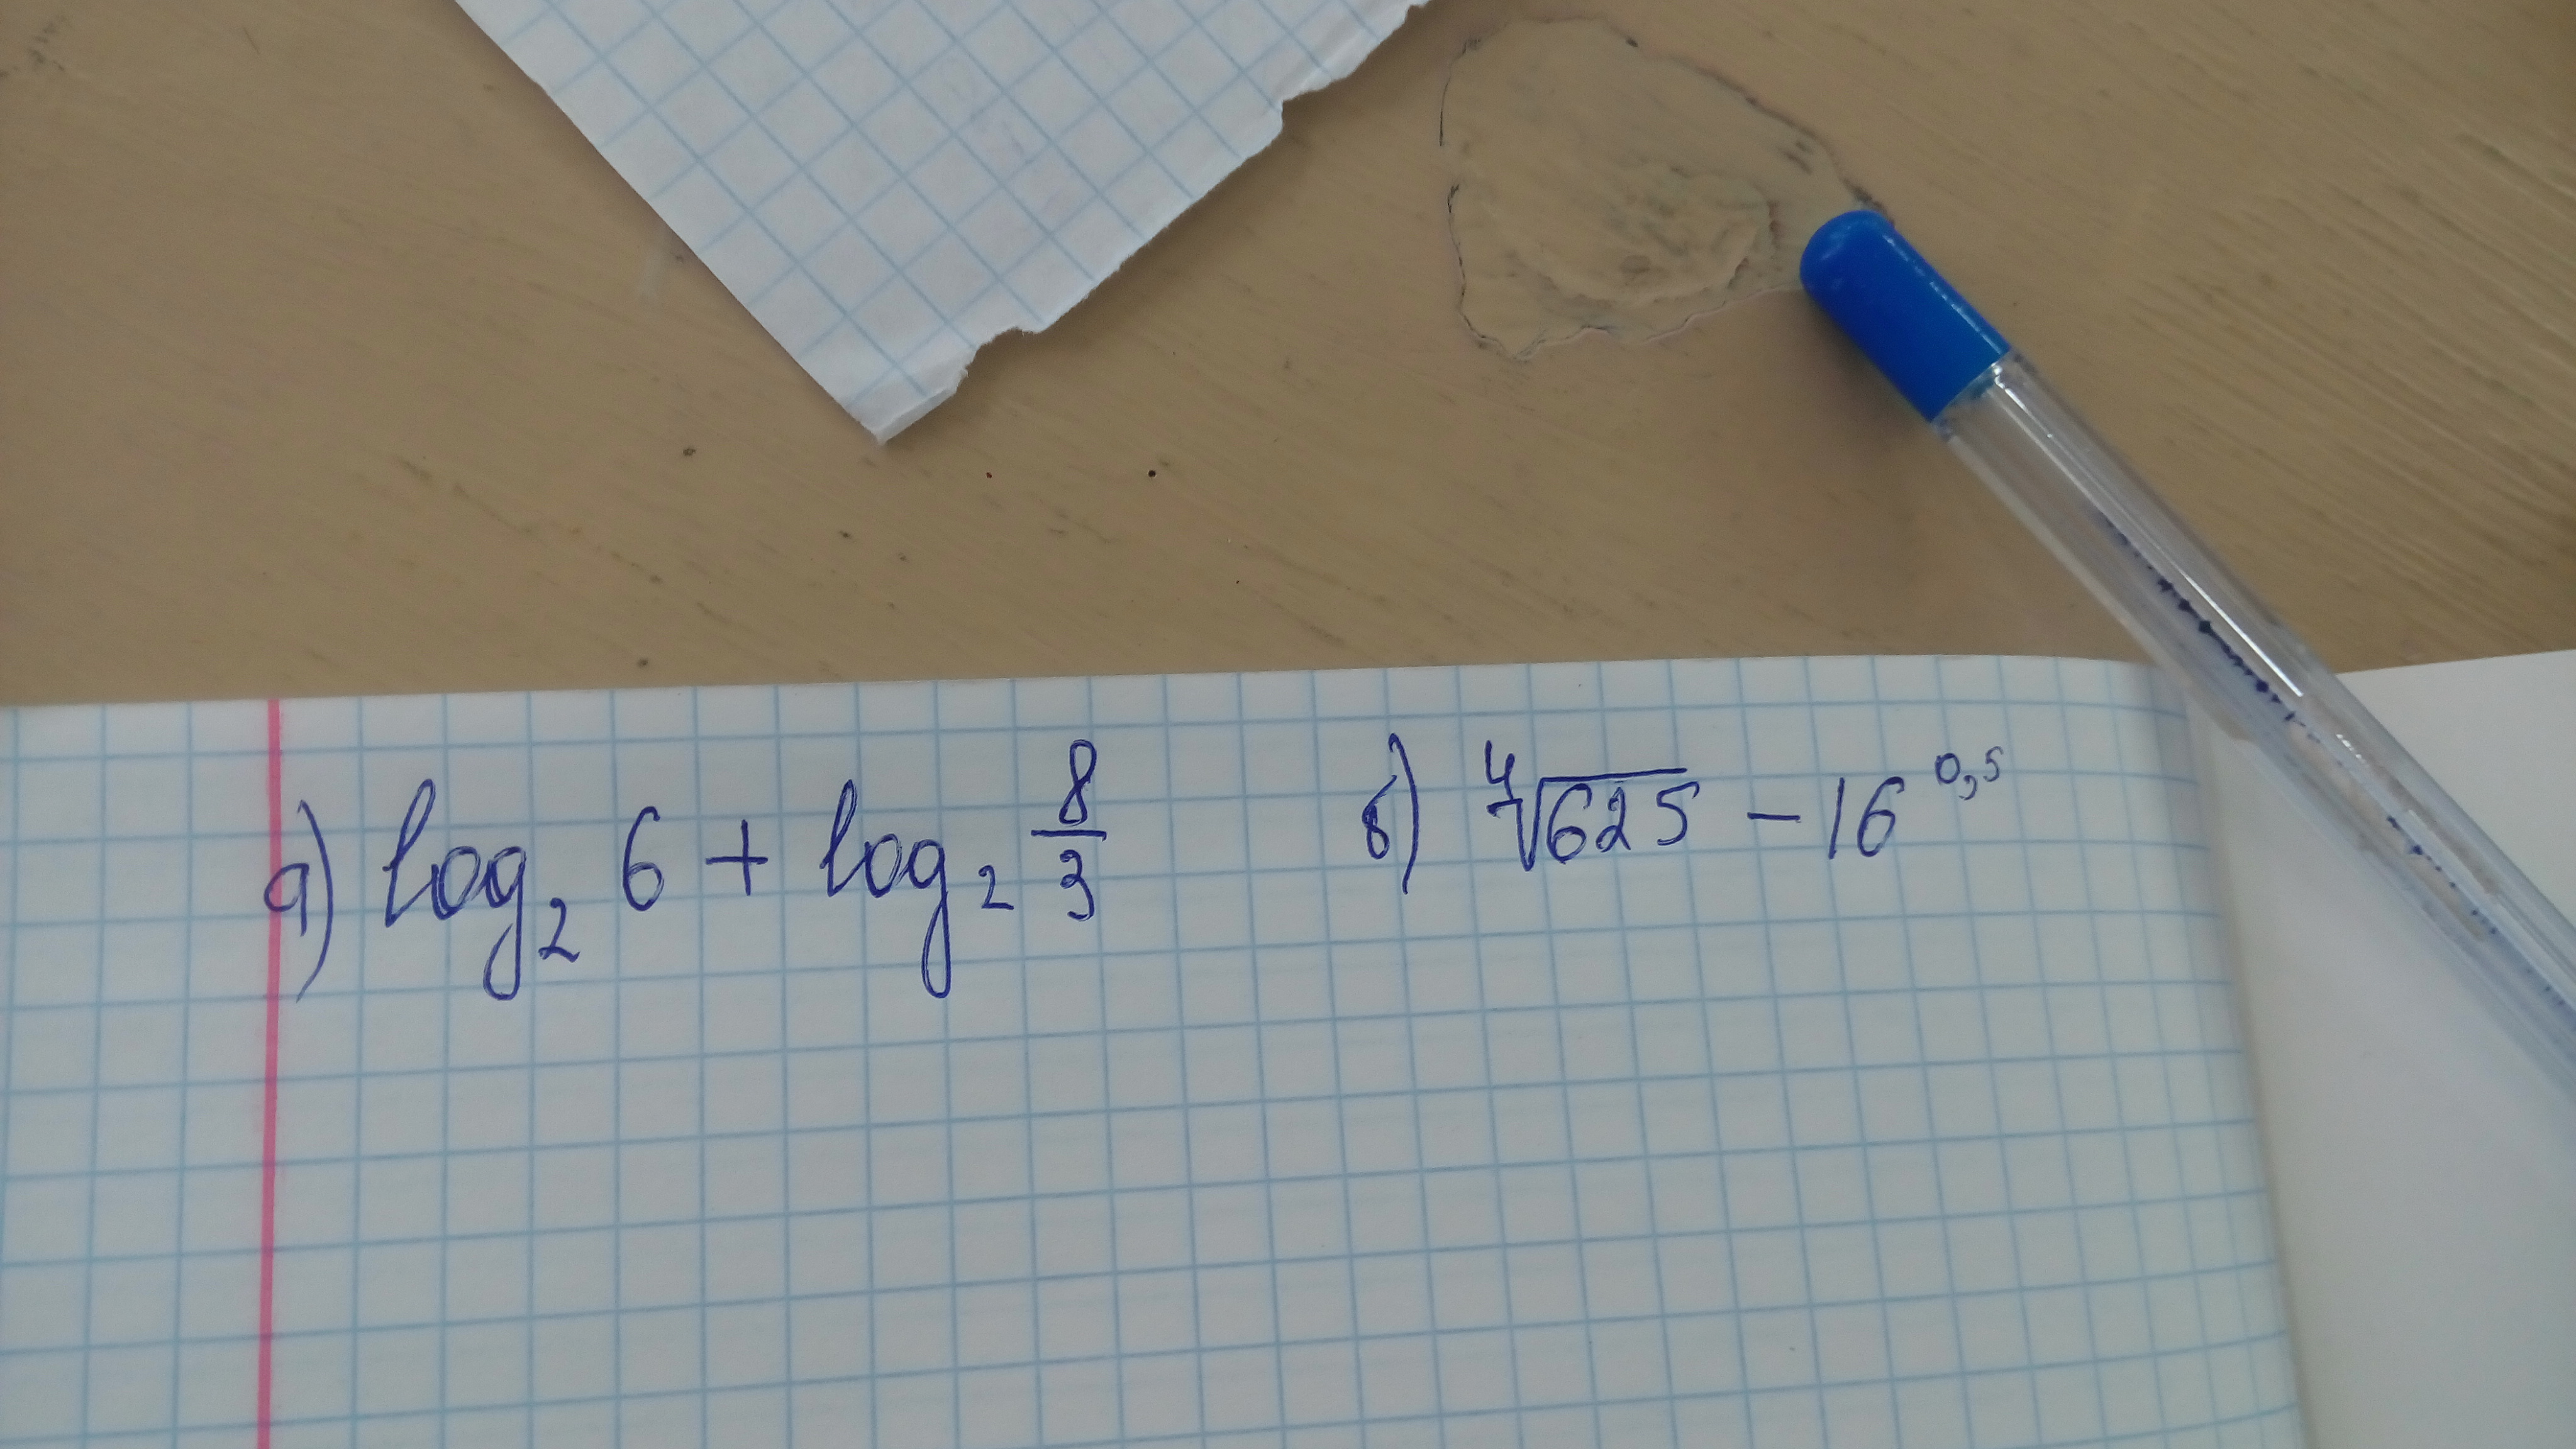 а) log₂ 6 + log₂ 8/3 б) ⁴√625 − 16^0,5